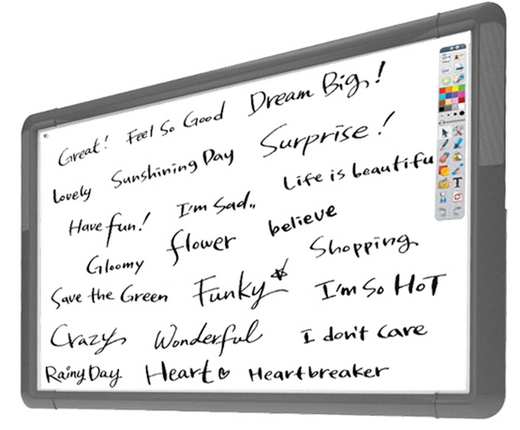 Great! Feel So Good Dream Big!
Lovely Sunshining Day Surprise!
Have fun! I'm Sad.. Life is beautifu
Gloomy flower believe Shopping
Save the Green Funky I'm So HoT
Crazy Wonderful I don't Care
Rainy Day Heart Heartbreaker
T